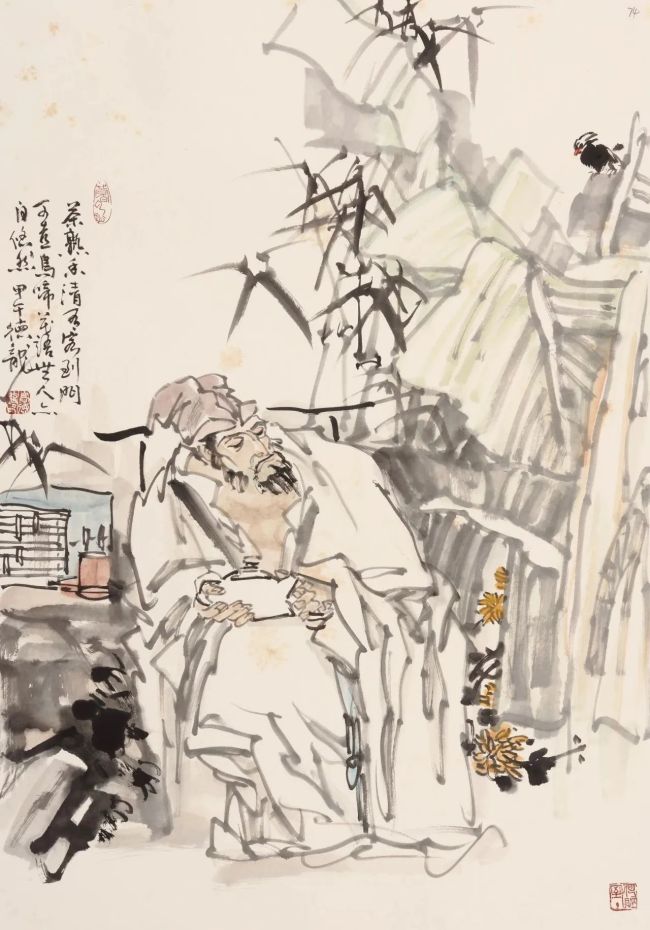 茶熟香清有客到門
可喜鳥啼花語無人亦
自悠然 甲午德龍
74